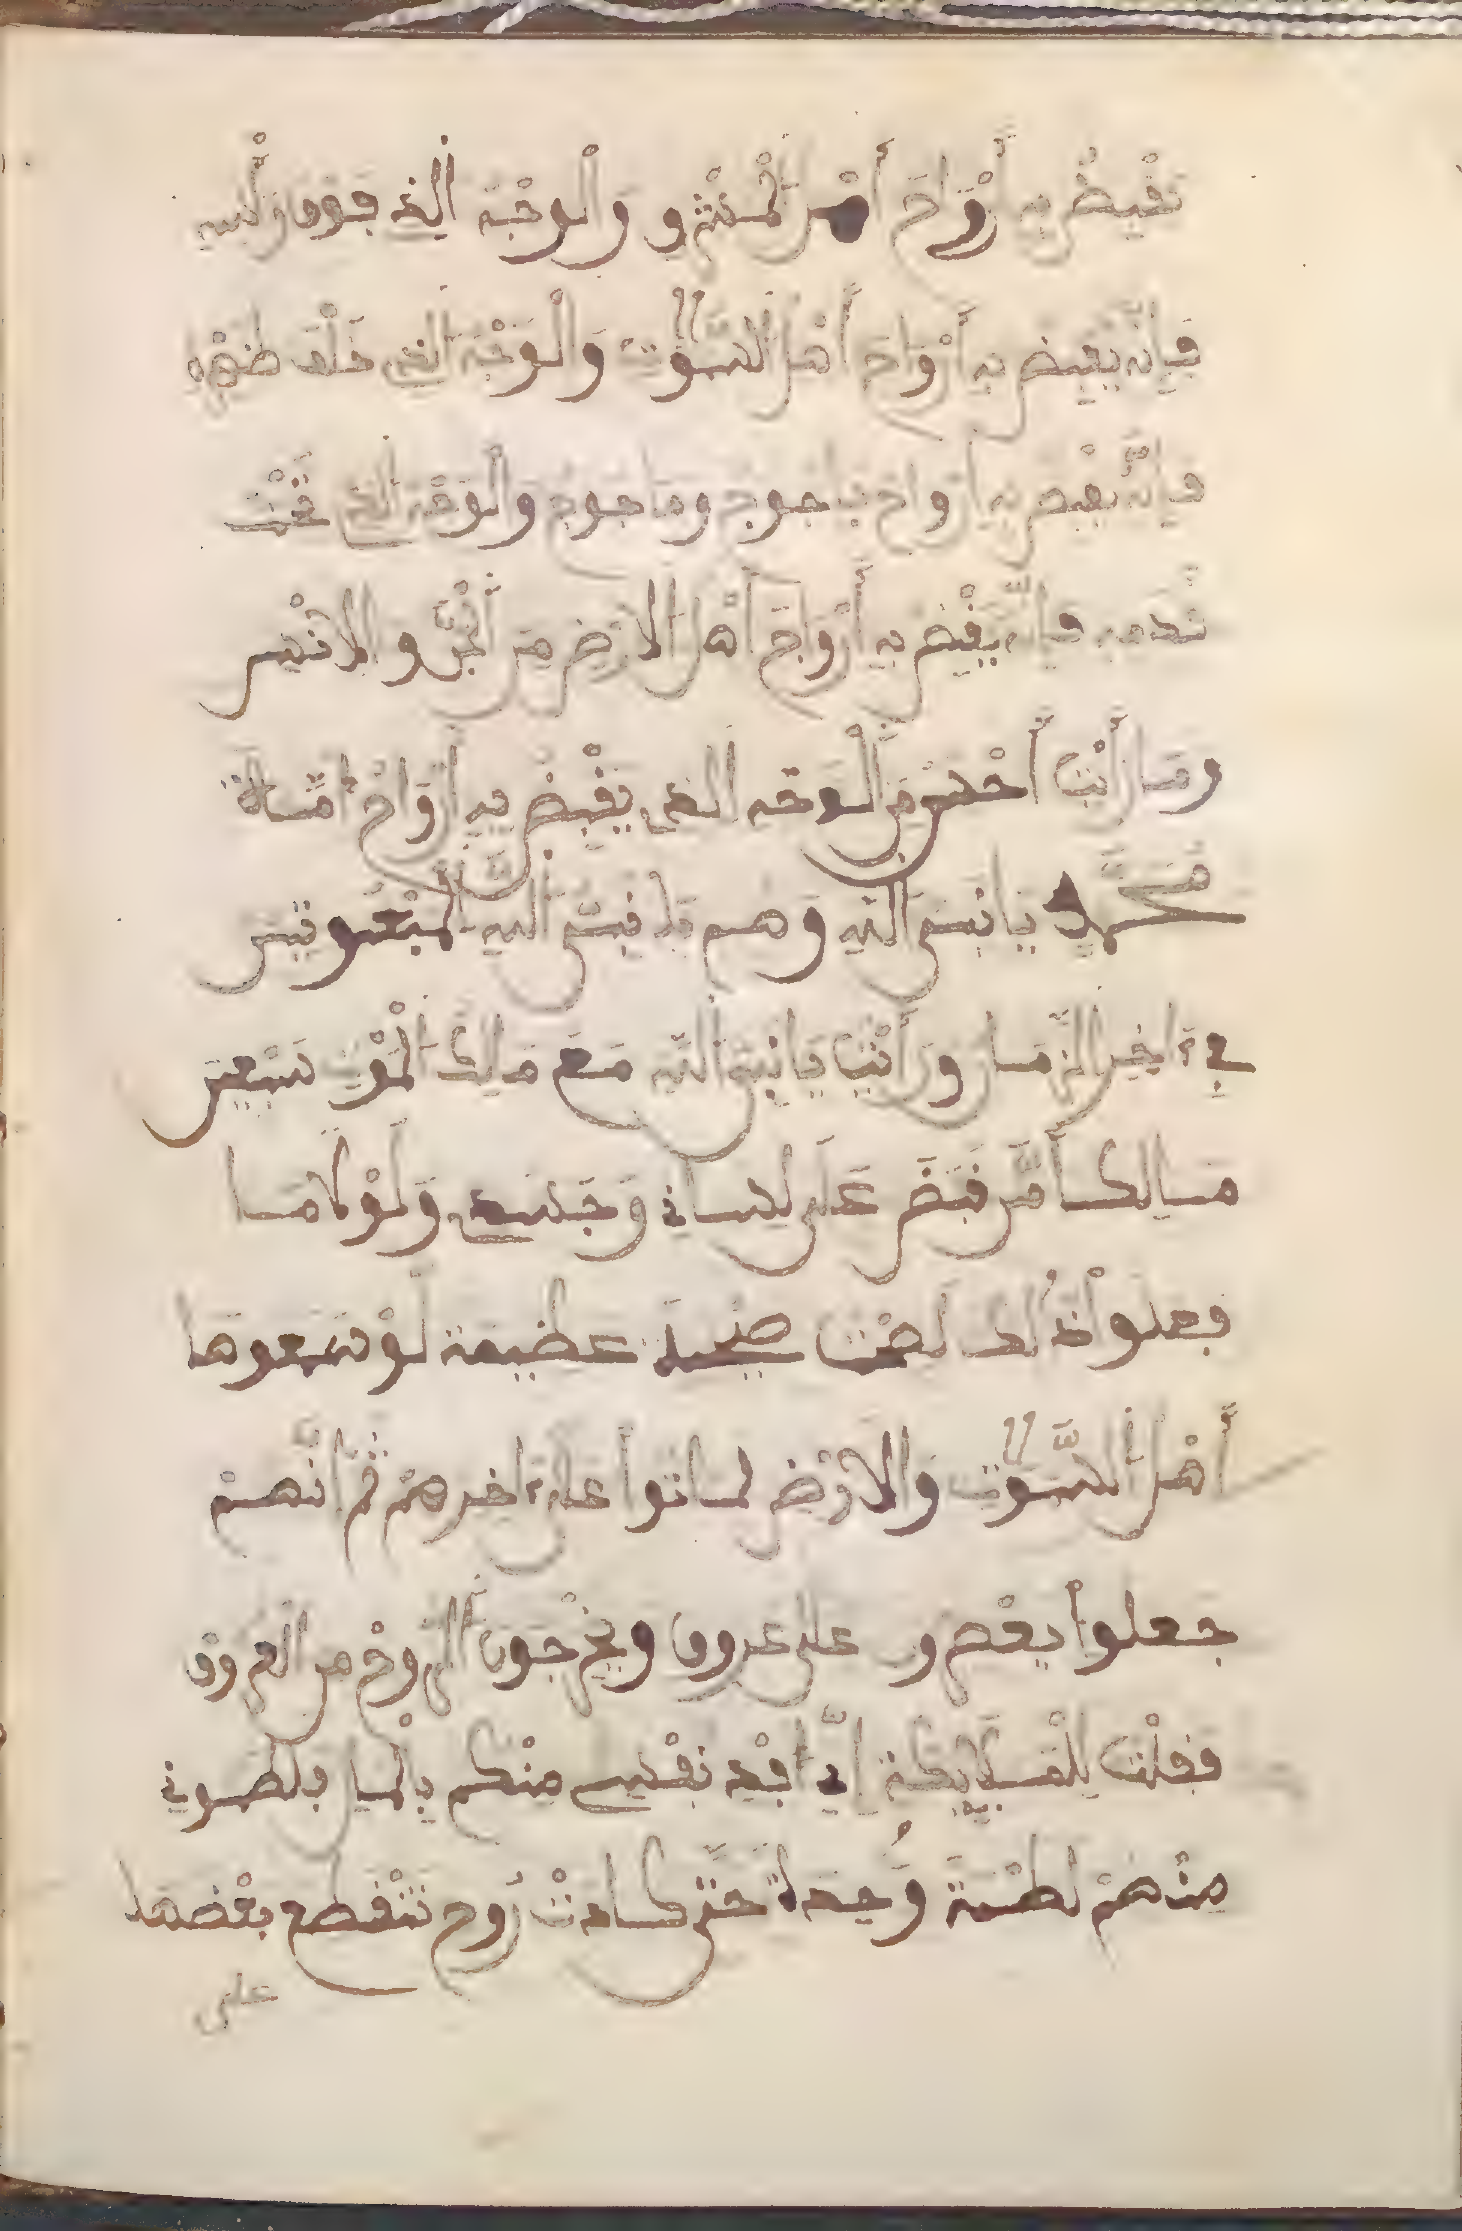 يقبض به أرواح أهل المشرق والوجه الذي فوق رأسه
فإنه يقبض به أرواح أهل السموت والوجه الذي خلف ظهره
فإنه يقبض به أرواح ياجوج وماجوج والوجه الذي تحت
قدمه فإنه يقبض به أرواح أهل الارض من الجن والانس
وما رأيت أحسن من الوجه الذي يقبض به أرواح امة
محمد يا نبي الله وهم يا نبي الله المبعوثين
في ءاخر الزمان ورأيت يا نبي الله مع ملك الموت سبعين
ملكا من قبض على لساني وجسدي ولولا ما
فعلوا ذلك لصحت صيحة عظيمة لو سمعوها
أهل السموت والارض لماتوا على ءاخرهم ثم انهم
جعلوا يقبضون على عروق ويخرجون الروح من العروق
فقلت للملايكة إني افدي نفسي منكم بالمال فلطموني
منهم لطمة وحدة حتى كادت روح تنقطع بعضها
على